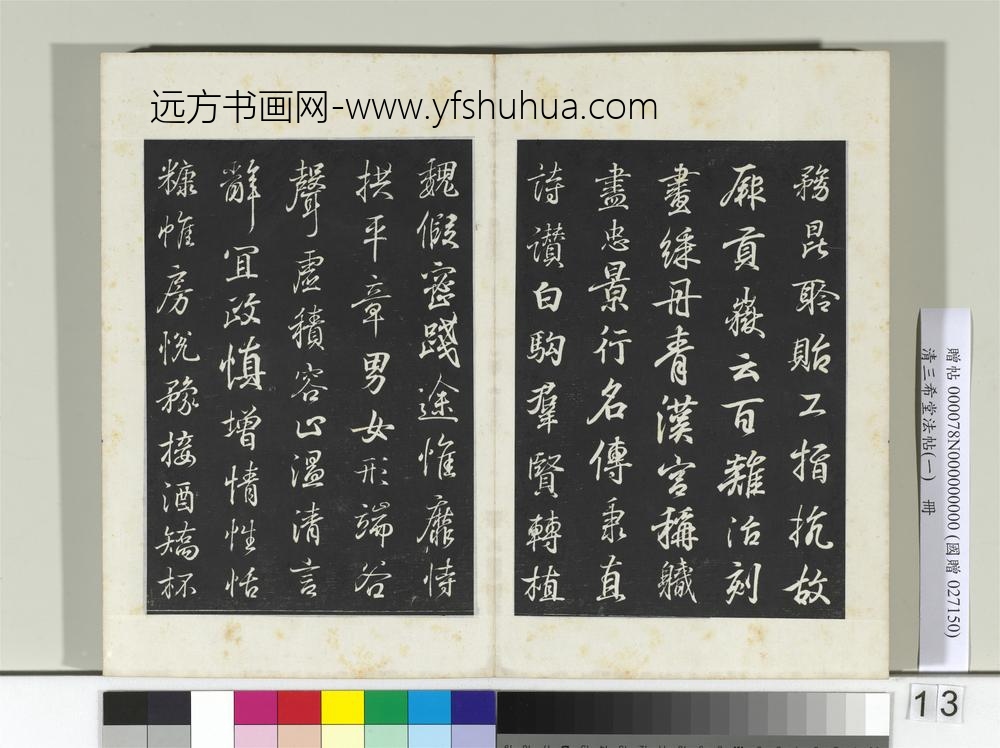 远方书画网-www.yfshuhua.com
務昆聆貽工指抗故
厥貢嶽云百難治刻
畫綵丹青漢宮稱軄
盡忠景行名傳秉直
詩讚白駒羣賢轉植
魏假密踐途惟靡恃
拱平章男女形端谷
聲虛積容止溫清言
辭宜政慎增情性恬
糠帷房悅豫接酒矯杯
贈帖 000078N000000000 (國贈 027150)
清三希堂法帖(一) 冊
13